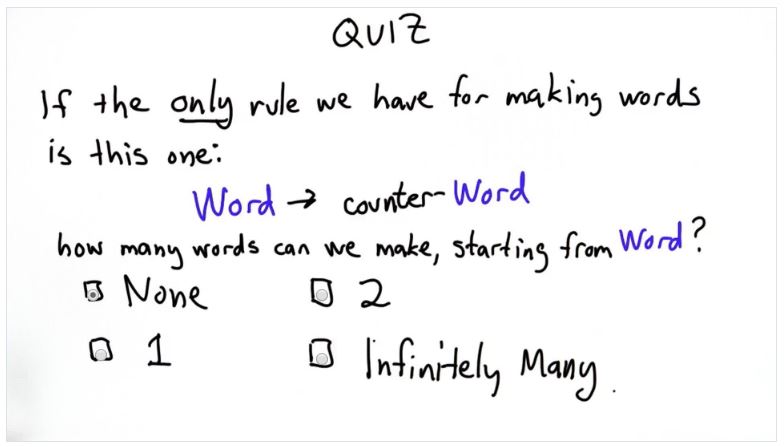 QUIZ
If the only rule we have for making words
is this one:
Word → counter-Word
how many words can we make, starting from Word?
None
2
1
Infinitely Many